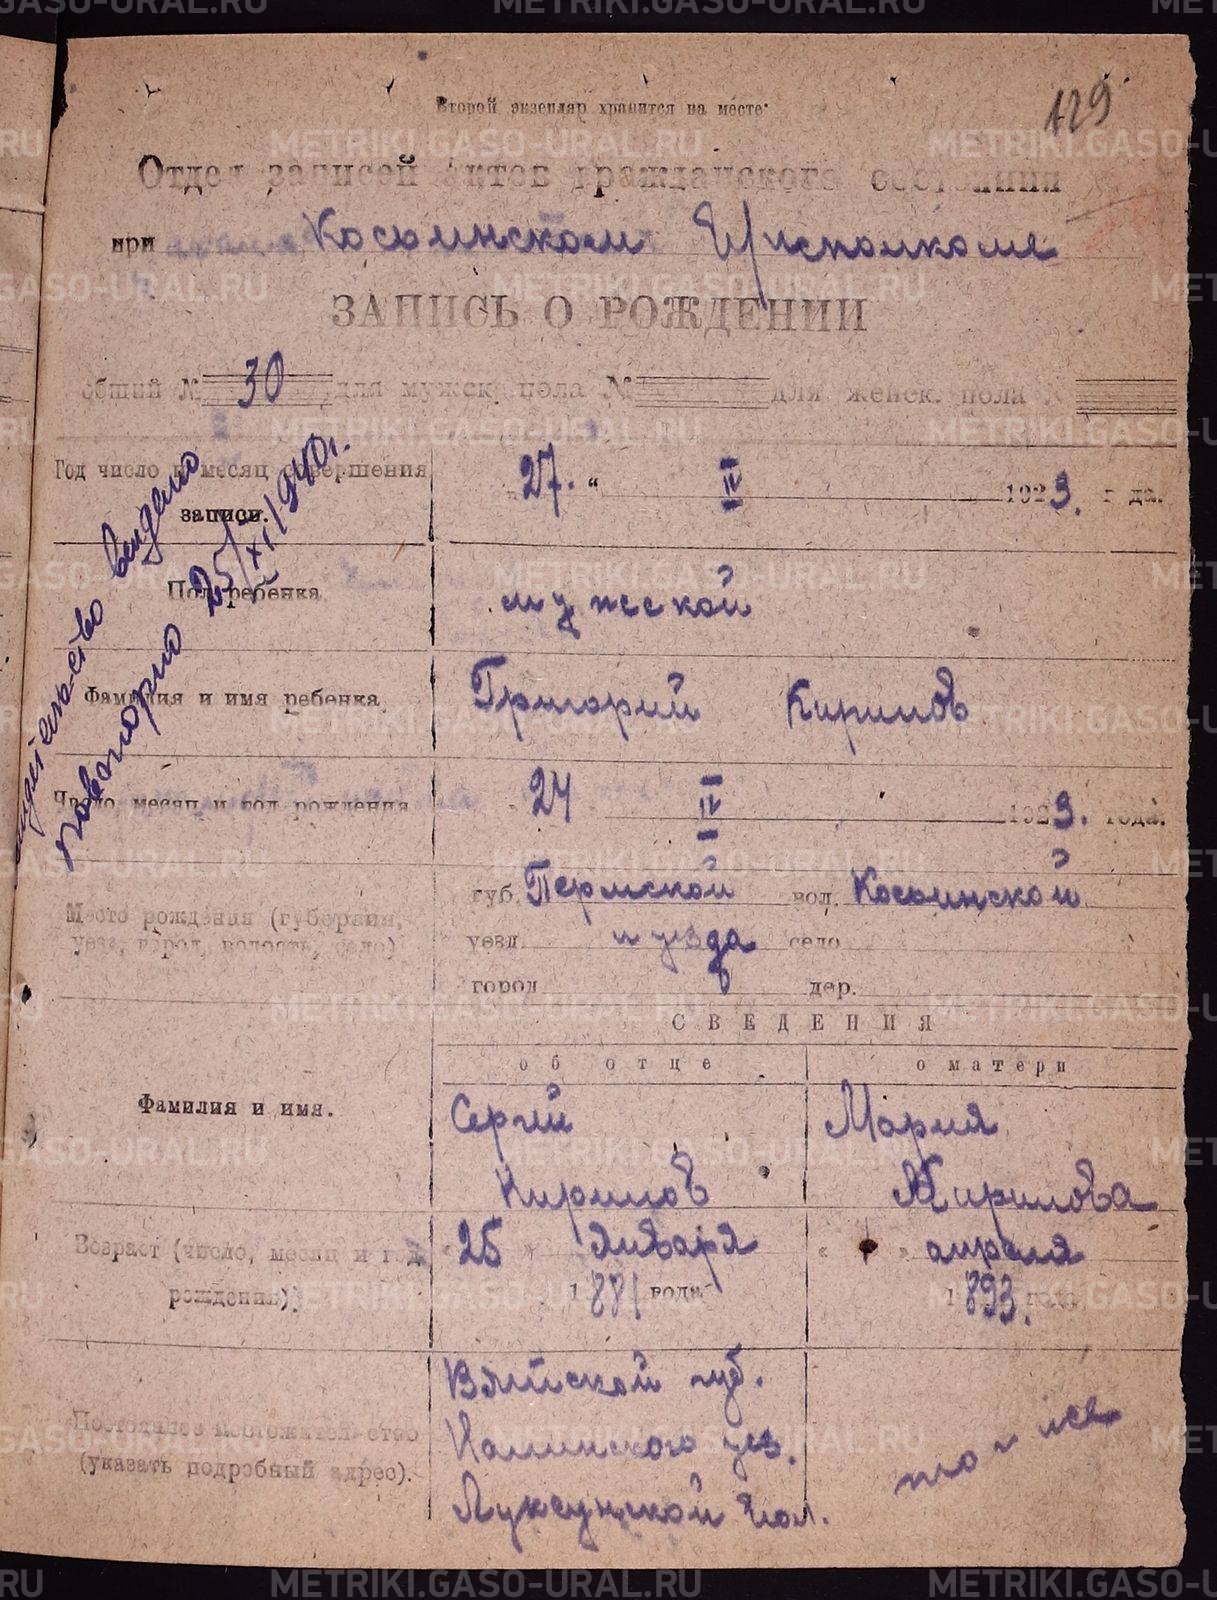 Второй экземпляр хранится на месте
129
Отдел записей актов гражданского состояния
при Косоинском В/исполкоме
ЗАПИСЬ О РОЖДЕНИИ
общий № 30 для мужск. пола № для женск. пола №
Год число и месяц совершения записи.
27. " IV 1923. года.
Свидетельство выдено
повторно 25/XI/1940г.
Пол ребенка
мужской
Фамилия и имя ребенка
Григорий Кирилов
Число, месяц и год рождения
24 IV 1923. года.
Место рождения (губерния,
уезд, город, волость, село)
губ. Пермской вол. Косоинской
уезд и уезда село
город дер.
СВЕДЕНИЯ
об отце о матери
Фамилия и имя.
Сергий Мария
Кирилов Кирилова
Возраст (число, месяц и год
рождения)
" 25 " января " " апреля
1881 года 1893. года
Постоянное местожительство
(указать подробный адрес).
Вятской губ.
уез.
вол.
METRIKI.GASO-URAL.RU